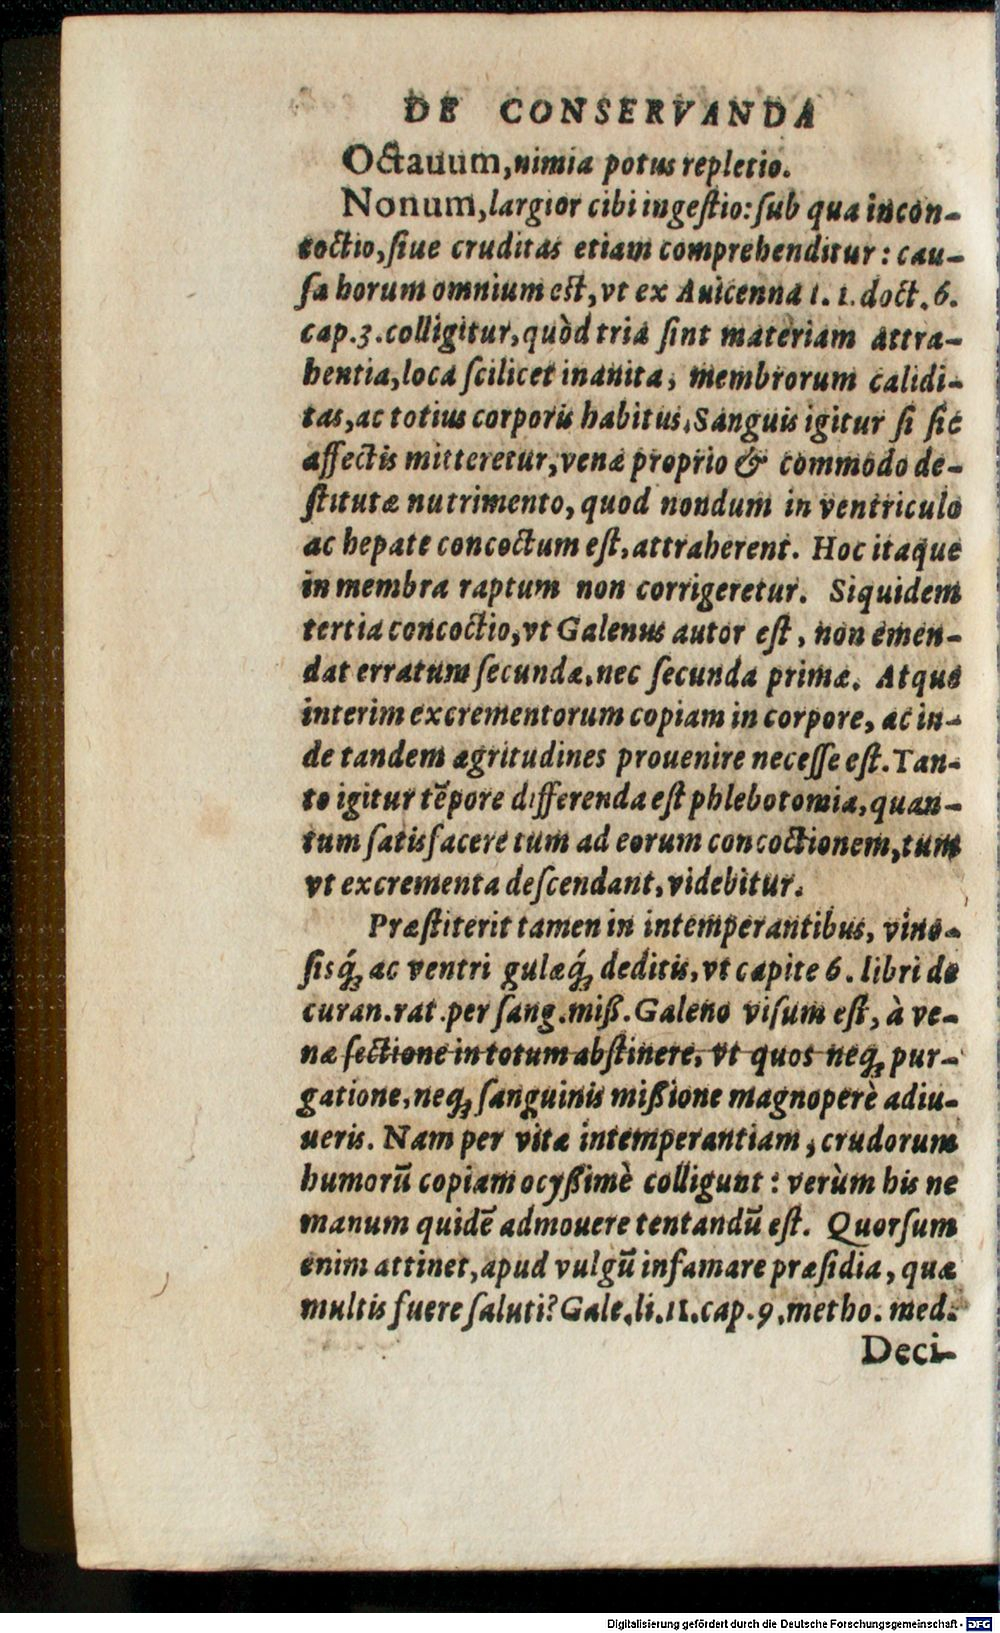 DE CONSERVANDA
Octauum, nimia potus repletio.
Nonum, largior cibi ingeſtio: ſub qua incon-
coctio, ſiue cruditas etiam comprehenditur: cau-
ſa horum omnium eſt, vt ex Auicenna 1. 1. doct. 6.
cap. 3. colligitur, quòd tria ſint materiam attra-
hentia, loca ſcilicet inanita, membrorum calidi-
tas, ac totius corporis habitus. Sanguis igitur ſi ſic
affectis mitteretur, venæ proprio & commodo de-
ſtitutæ nutrimento, quod nondum in ventriculo
ac hepate concoctum eſt, attraherent. Hoc itaque
in membra raptum non corrigeretur. Siquidem
tertia concoctio, vt Galenus autor eſt, non emen-
dat erratum ſecundæ, nec ſecunda primæ. Atque
interim excrementorum copiam in corpore, ac in-
de tandem ægritudines prouenire neceſſe eſt. Tan-
to igitur tēpore differenda eſt phlebotomia, quan-
tum ſatisfacere tum ad eorum concoctionem, tum
vt excrementa deſcendant, videbitur.
Præſtiterit tamen in intemperantibus, vino-
ſisq́; ac ventri gulæq́; deditis, vt capite 6. libri de
curan. rat. per ſang. miß. Galeno viſum eſt, à ve-
næ ſectione in totum abſtinere, vt quos neq; pur-
gatione, neq; ſanguinis mißione magnoperè adiu-
ueris. Nam per vitæ intemperantiam, crudorum
humorū copiam ocyßimè colligunt: verùm his ne
manum quidē admouere tentandū eſt. Quorſum
enim attinet, apud vulgū infamare præſidia, quæ
multis fuere ſaluti? Gale. li. 11. cap. 9. metho. med.
Deci-
Digitalisierung gefördert durch die Deutsche Forschungsgemeinschaft - DFG